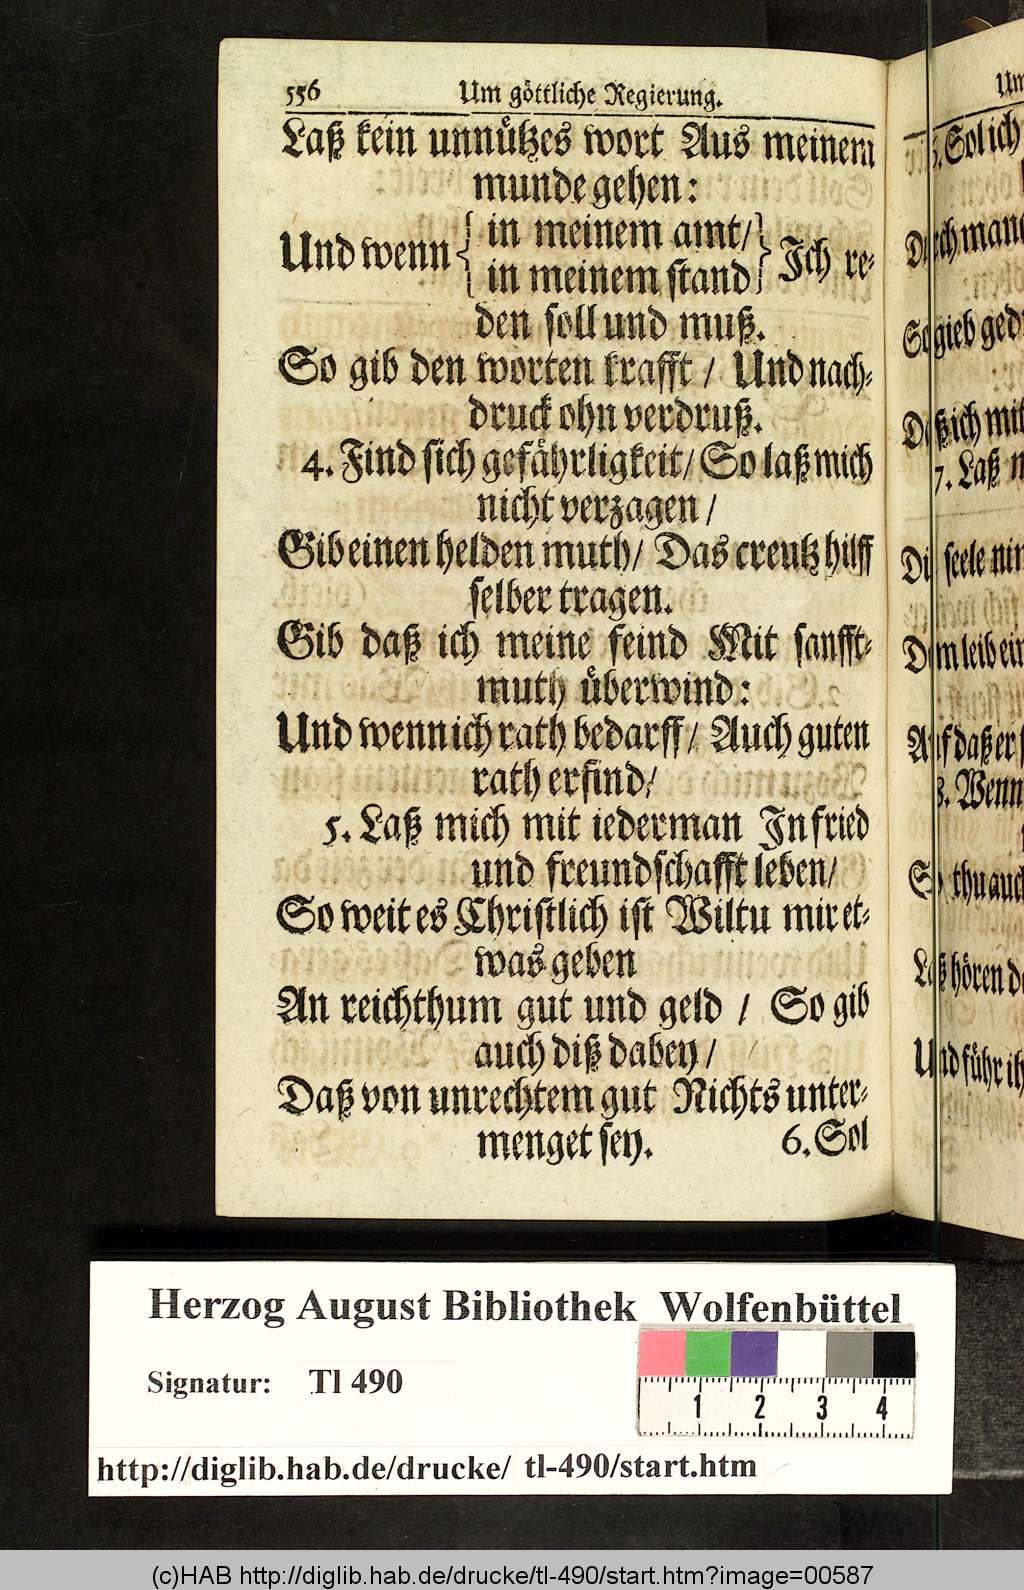 556 Um göttliche Regierung.
Laß kein unnützes wort Aus meinem
munde gehen:
Und wenn { in meinem amt/ } Ich re-
{ in meinem stand }
den soll und muß.
So gib den worten krafft / Und nach-
druck ohn verdruß.
4. Find sich gefährligkeit/ So laß mich
nicht verzagen /
Gib einen helden muth/ Das creutz hilff
selber tragen.
Gib daß ich meine feind Mit sanfft-
muth überwind:
Und wenn ich rath bedarff/ Auch guten
rath erfind/
5. Laß mich mit iederman In fried
und freundschafft leben/
So weit es Christlich ist Wiltu mir et-
was geben
An reichthum gut und geld / So gib
auch diß dabey /
Daß von unrechtem gut Nichts unter-
menget sey. 6. Sol
Sol ich
So gieb
Daß ich mit
7. Laß
seele
leib
Auf daß er
8. Wenn
So thu auch
Laß hören
Und führ
Herzog August Bibliothek Wolfenbüttel
Signatur: Tl 490
1 2 3 4
http://diglib.hab.de/drucke/ tl-490/start.htm
(c)HAB http://diglib.hab.de/drucke/tl-490/start.htm?image=00587